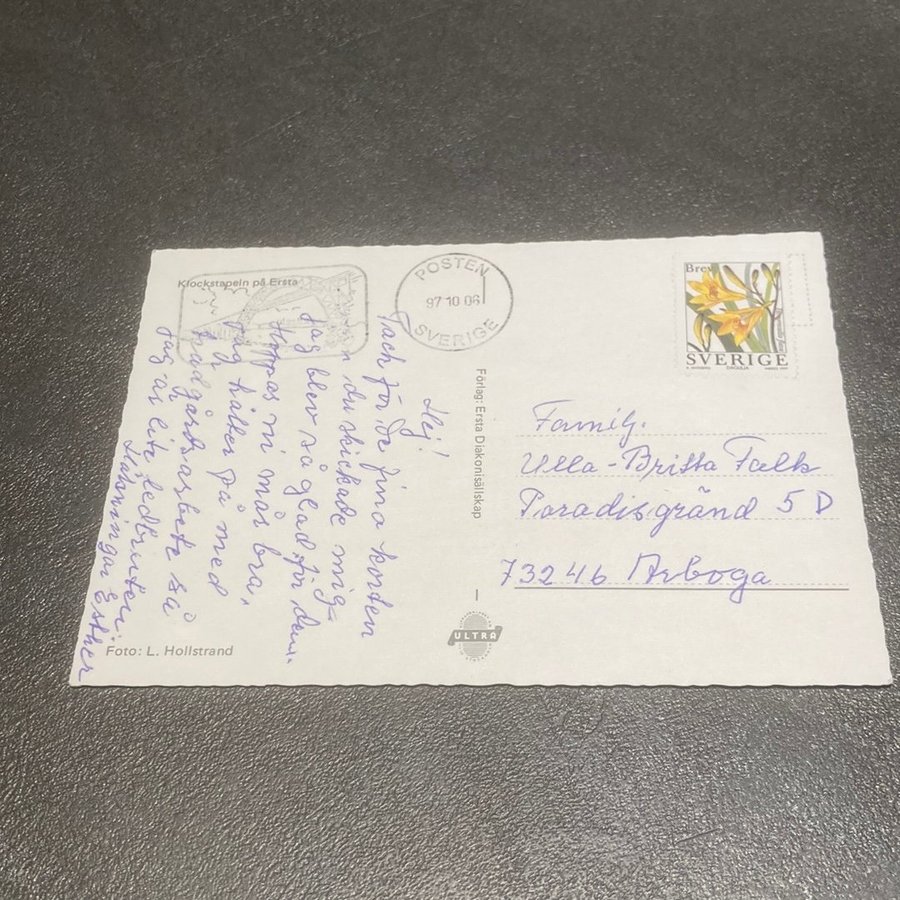 Klockstapeln på Ersta
POSTEN
97 10 06
SVERIGE
Brev
SVERIGE
Hej!
Tack för de fina korten
du skickade mig
Jag blev så glad för dem.
Hoppas ni mår bra,
Jag håller på med
trädgårdsarbete så
jag är lite ledbruten.
Hälsningar Esther
Förlag: Ersta Diakonisällskap
Famil.
Ulla-Britta Falk
Paradisgränd 5 D
73246 Arboga
ULTRA
Foto: L. Hollstrand